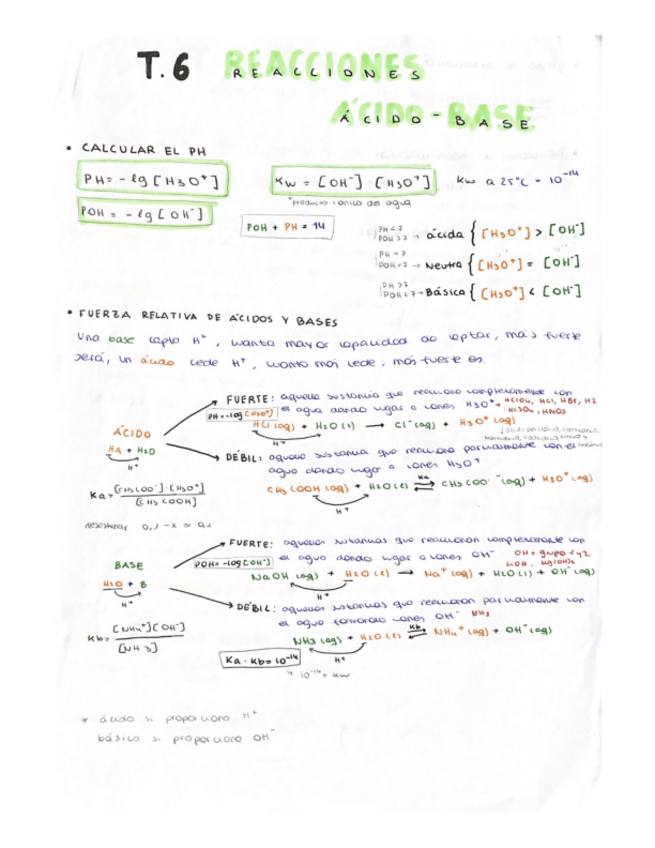 T.6 REACCIONES
REACCIONES
ÁCIDO-BASE
ÁCIDO-BASE
• CALCULAR EL PH
PH = - lg [H3O⁺]
Kw = [OH⁻] · [H3O⁺]
Kw a 25°C = 10⁻¹⁴
*producto iónico del agua
POH = - lg [OH⁻]
POH + PH = 14
PH < 7
POH > 7 → ácida { [H3O⁺] > [OH⁻]
PH = 7
POH = 7 → Neutra { [H3O⁺] = [OH⁻]
PH > 7
POH < 7 → Básica { [H3O⁺] < [OH⁻]
• FUERZA RELATIVA DE ÁCIDOS Y BASES
Una base capta H⁺, cuanta mayor capacidad de captar, más fuerte
será, un ácido cede H⁺, cuanto más cede, más fuerte es.
FUERTE: aquella sustancia que reacciona completamente con
el agua dando lugar a iones H3O⁺ * HClO4, HCl, HBr, HI
H2SO4, HNO3
PH = -log[H3O⁺]
HCl (aq) + H2O (l) → Cl⁻(aq) + H3O⁺ (aq)
H⁺
ÁCIDO
HA + H2O
H⁺
DÉBIL: aquella sustancia que reacciona parcialmente con el
agua dando lugar a iones H3O⁺
Ka = [CH3COO⁻]·[H3O⁺] / [CH3COOH]
CH3COOH (aq) + H2O (l) ⇌ Ka CH3COO⁻ (aq) + H3O⁺ (aq)
H⁺
0,1 - x ≈ 0,1
FUERTE: aquellas sustancias que reaccionan completamente con
el agua dando lugar a iones OH⁻ OH + grupo 1 y 2
POH = -log[OH⁻]
NaOH (aq) + H2O (l) → Na⁺ (aq) + H2O (l) + OH⁻ (aq)
H⁺
BASE
H2O + B
H⁺
DÉBIL: aquellas sustancias que reaccionan parcialmente con
el agua formando iones OH⁻ NH3
Kb = [NH4⁺][OH⁻] / [NH3]
NH3 (aq) + H2O (l) ⇌ Kb NH4⁺ (aq) + OH⁻ (aq)
H⁺
Ka · Kb = 10⁻¹⁴
10⁻¹⁴ = Kw
* ácido si proporciona H⁺
básico si proporciona OH⁻